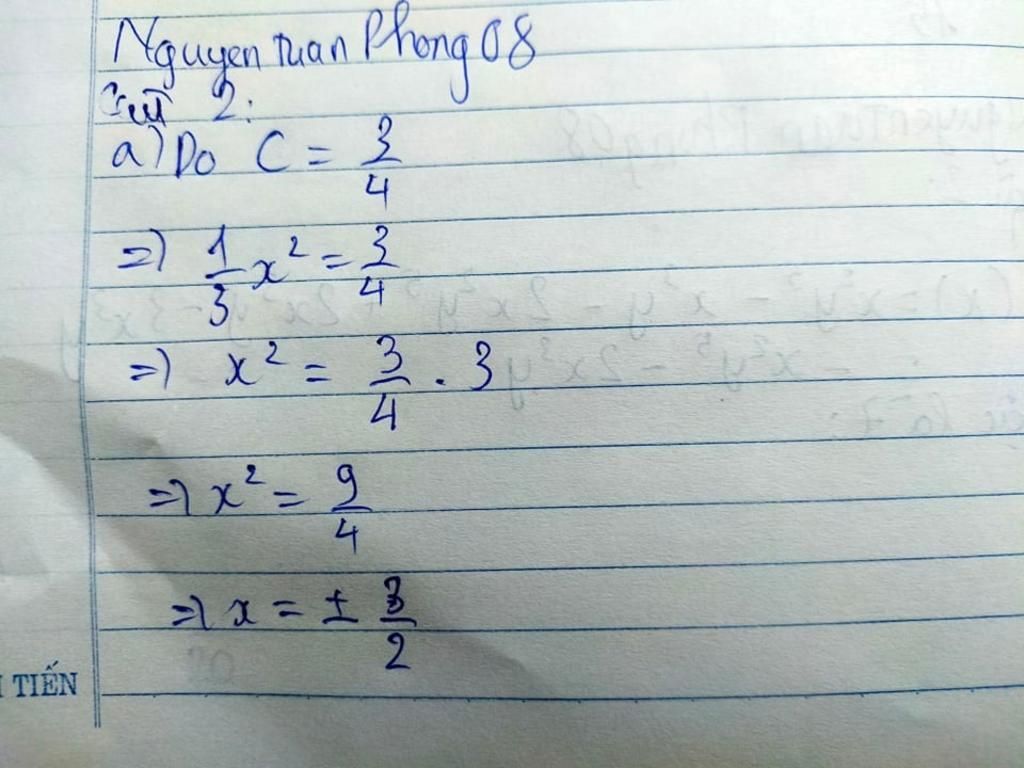 Nguyen tuan Phong 08
Câu 2:
a) Do C = 3/4
=) 1/3 x² = 3/4
=) x² = 3/4 . 3
=) x² = 9/4
=) x = ± 3/2
TIẾN